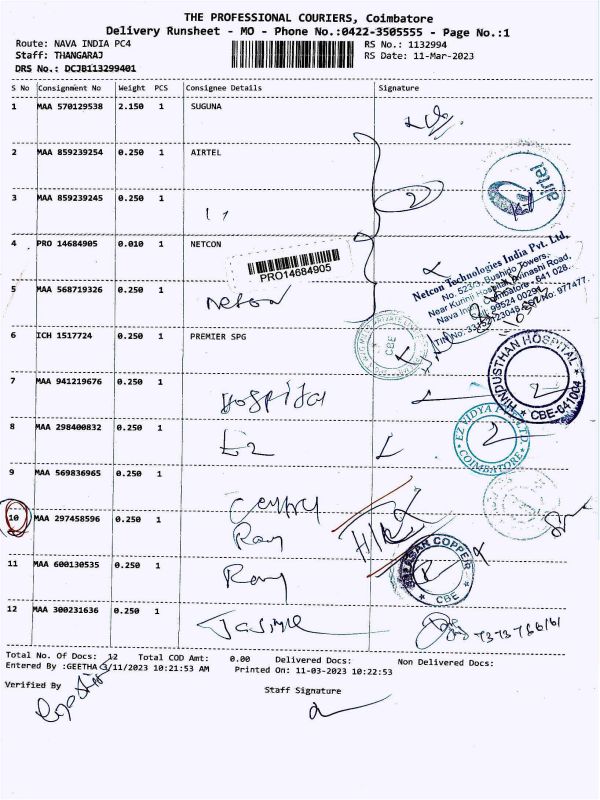 THE PROFESSIONAL COURIERS, Coimbatore
Delivery Runsheet - MO - Phone No.:0422-3505555 - Page No.:1
Route: NAVA INDIA PC4 RS No.: 1132994
Staff: THANGARAJ RS Date: 11-Mar-2023
DRS No.: DCJB113299401
S No Consignment No Weight PCS Consignee Details Signature
1 MAA 570129538 2.150 1 SUGUNA
2 MAA 859239254 0.250 1 AIRTEL
airtel
3 MAA 859239245 0.250 1
4 PRO 14684905 0.010 1 NETCON
PRO14684905
Netcon Technologies India Pvt. Ltd,
No. 523/3, Bushipo Towers,
Near Kunnji Hospital, Avinashi Road,
Nava India, Coimbatore - 641 028.
5 MAA 568719326 0.250 1 Netcon
6 ICH 1517724 0.250 1 PREMIER SPG
CBE
HINDUSTHAN HOSPITAL
CBE-041004
7 MAA 941219676 0.250 1 Hospital
8 MAA 298400832 0.250 1 Ez
EZ VIDYA PVT LTD.
COIMBATORE
9 MAA 569836965 0.250 1
10 MAA 297458596 0.250 1 Roy
11 MAA 600130535 0.250 1 Roy
COPPER
CBE
12 MAA 300231636 0.250 1
Total No. Of Docs: 12 Total COD Amt: 0.00 Delivered Docs: Non Delivered Docs:
Entered By :GEETHA 3/11/2023 10:21:53 AM Printed On: 11-03-2023 10:22:53
Verified By Staff Signature